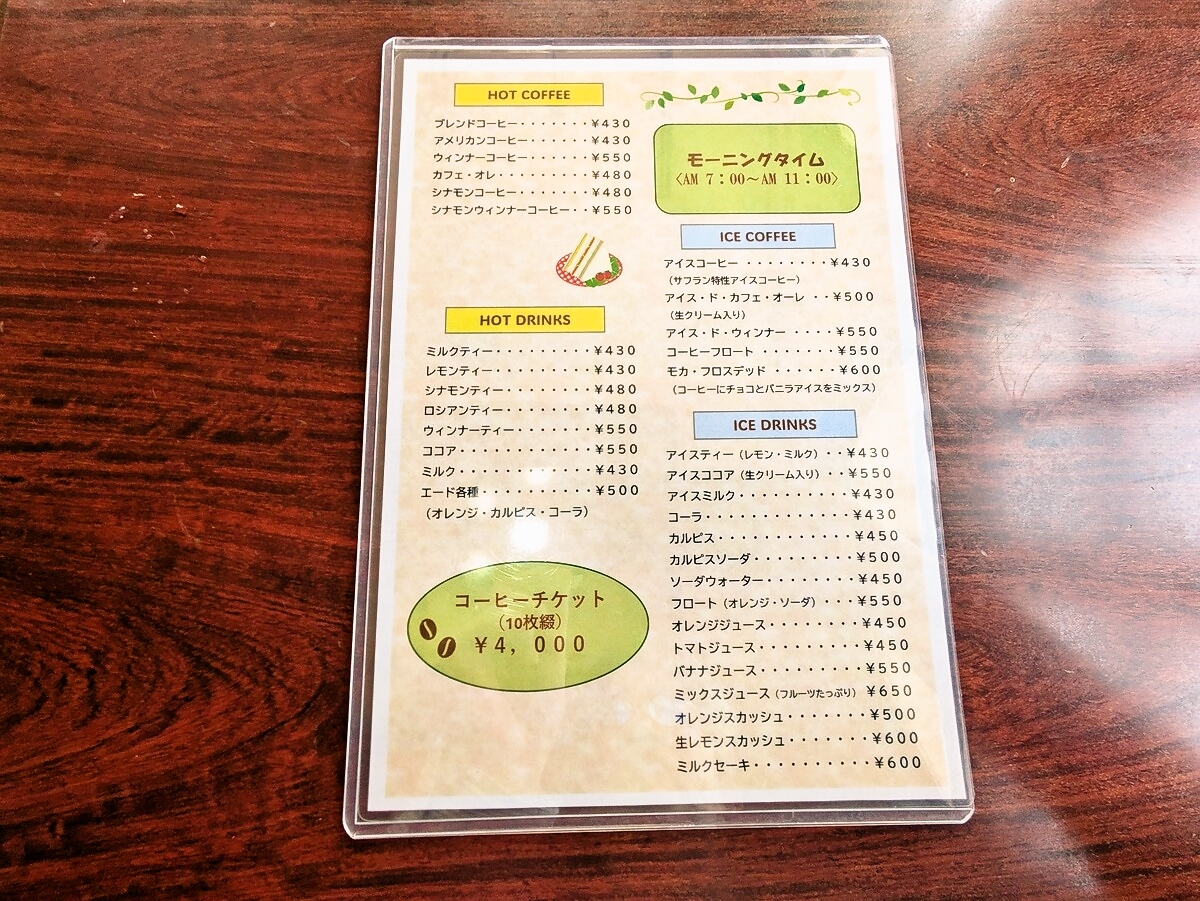 HOT COFFEE
ブレンドコーヒー・・・・・・・¥430
アメリカンコーヒー・・・・・・¥430
ウィンナーコーヒー・・・・・・¥550
カフェ・オレ・・・・・・・・・¥480
シナモンコーヒー・・・・・・・¥480
シナモンウィンナーコーヒー・・¥550
HOT DRINKS
ミルクティー・・・・・・・・・¥430
レモンティー・・・・・・・・・¥430
シナモンティー・・・・・・・・¥480
ロシアンティー・・・・・・・・¥480
ウィンナーティー・・・・・・・¥550
ココア・・・・・・・・・・・・¥550
ミルク・・・・・・・・・・・・¥430
エード各種・・・・・・・・・・¥500
（オレンジ・カルピス・コーラ）
コーヒーチケット
（10枚綴）
¥4，000
モーニングタイム
〈AM 7：00～AM 11：00〉
ICE COFFEE
アイスコーヒー ・・・・・・・・¥430
（サフラン特性アイスコーヒー）
アイス・ド・カフェ・オーレ ・・¥500
（生クリーム入り）
アイス・ド・ウィンナー ・・・・¥550
コーヒーフロート ・・・・・・・¥550
モカ・フロスデッド ・・・・・・¥600
（コーヒーにチョコとバニラアイスをミックス）
ICE DRINKS
アイスティー（レモン・ミルク）・・¥430
アイスココア（生クリーム入り）・・¥550
アイスミルク・・・・・・・・・・¥430
コーラ・・・・・・・・・・・・・¥430
カルピス・・・・・・・・・・・・¥450
カルピスソーダ・・・・・・・・・¥500
ソーダウォーター・・・・・・・・¥450
フロート（オレンジ・ソーダ）・・・¥550
オレンジジュース・・・・・・・・¥450
トマトジュース・・・・・・・・・¥450
バナナジュース・・・・・・・・・¥550
ミックスジュース（フルーツたっぷり）¥650
オレンジスカッシュ・・・・・・・¥500
生レモンスカッシュ・・・・・・・¥600
ミルクセーキ・・・・・・・・・・¥600